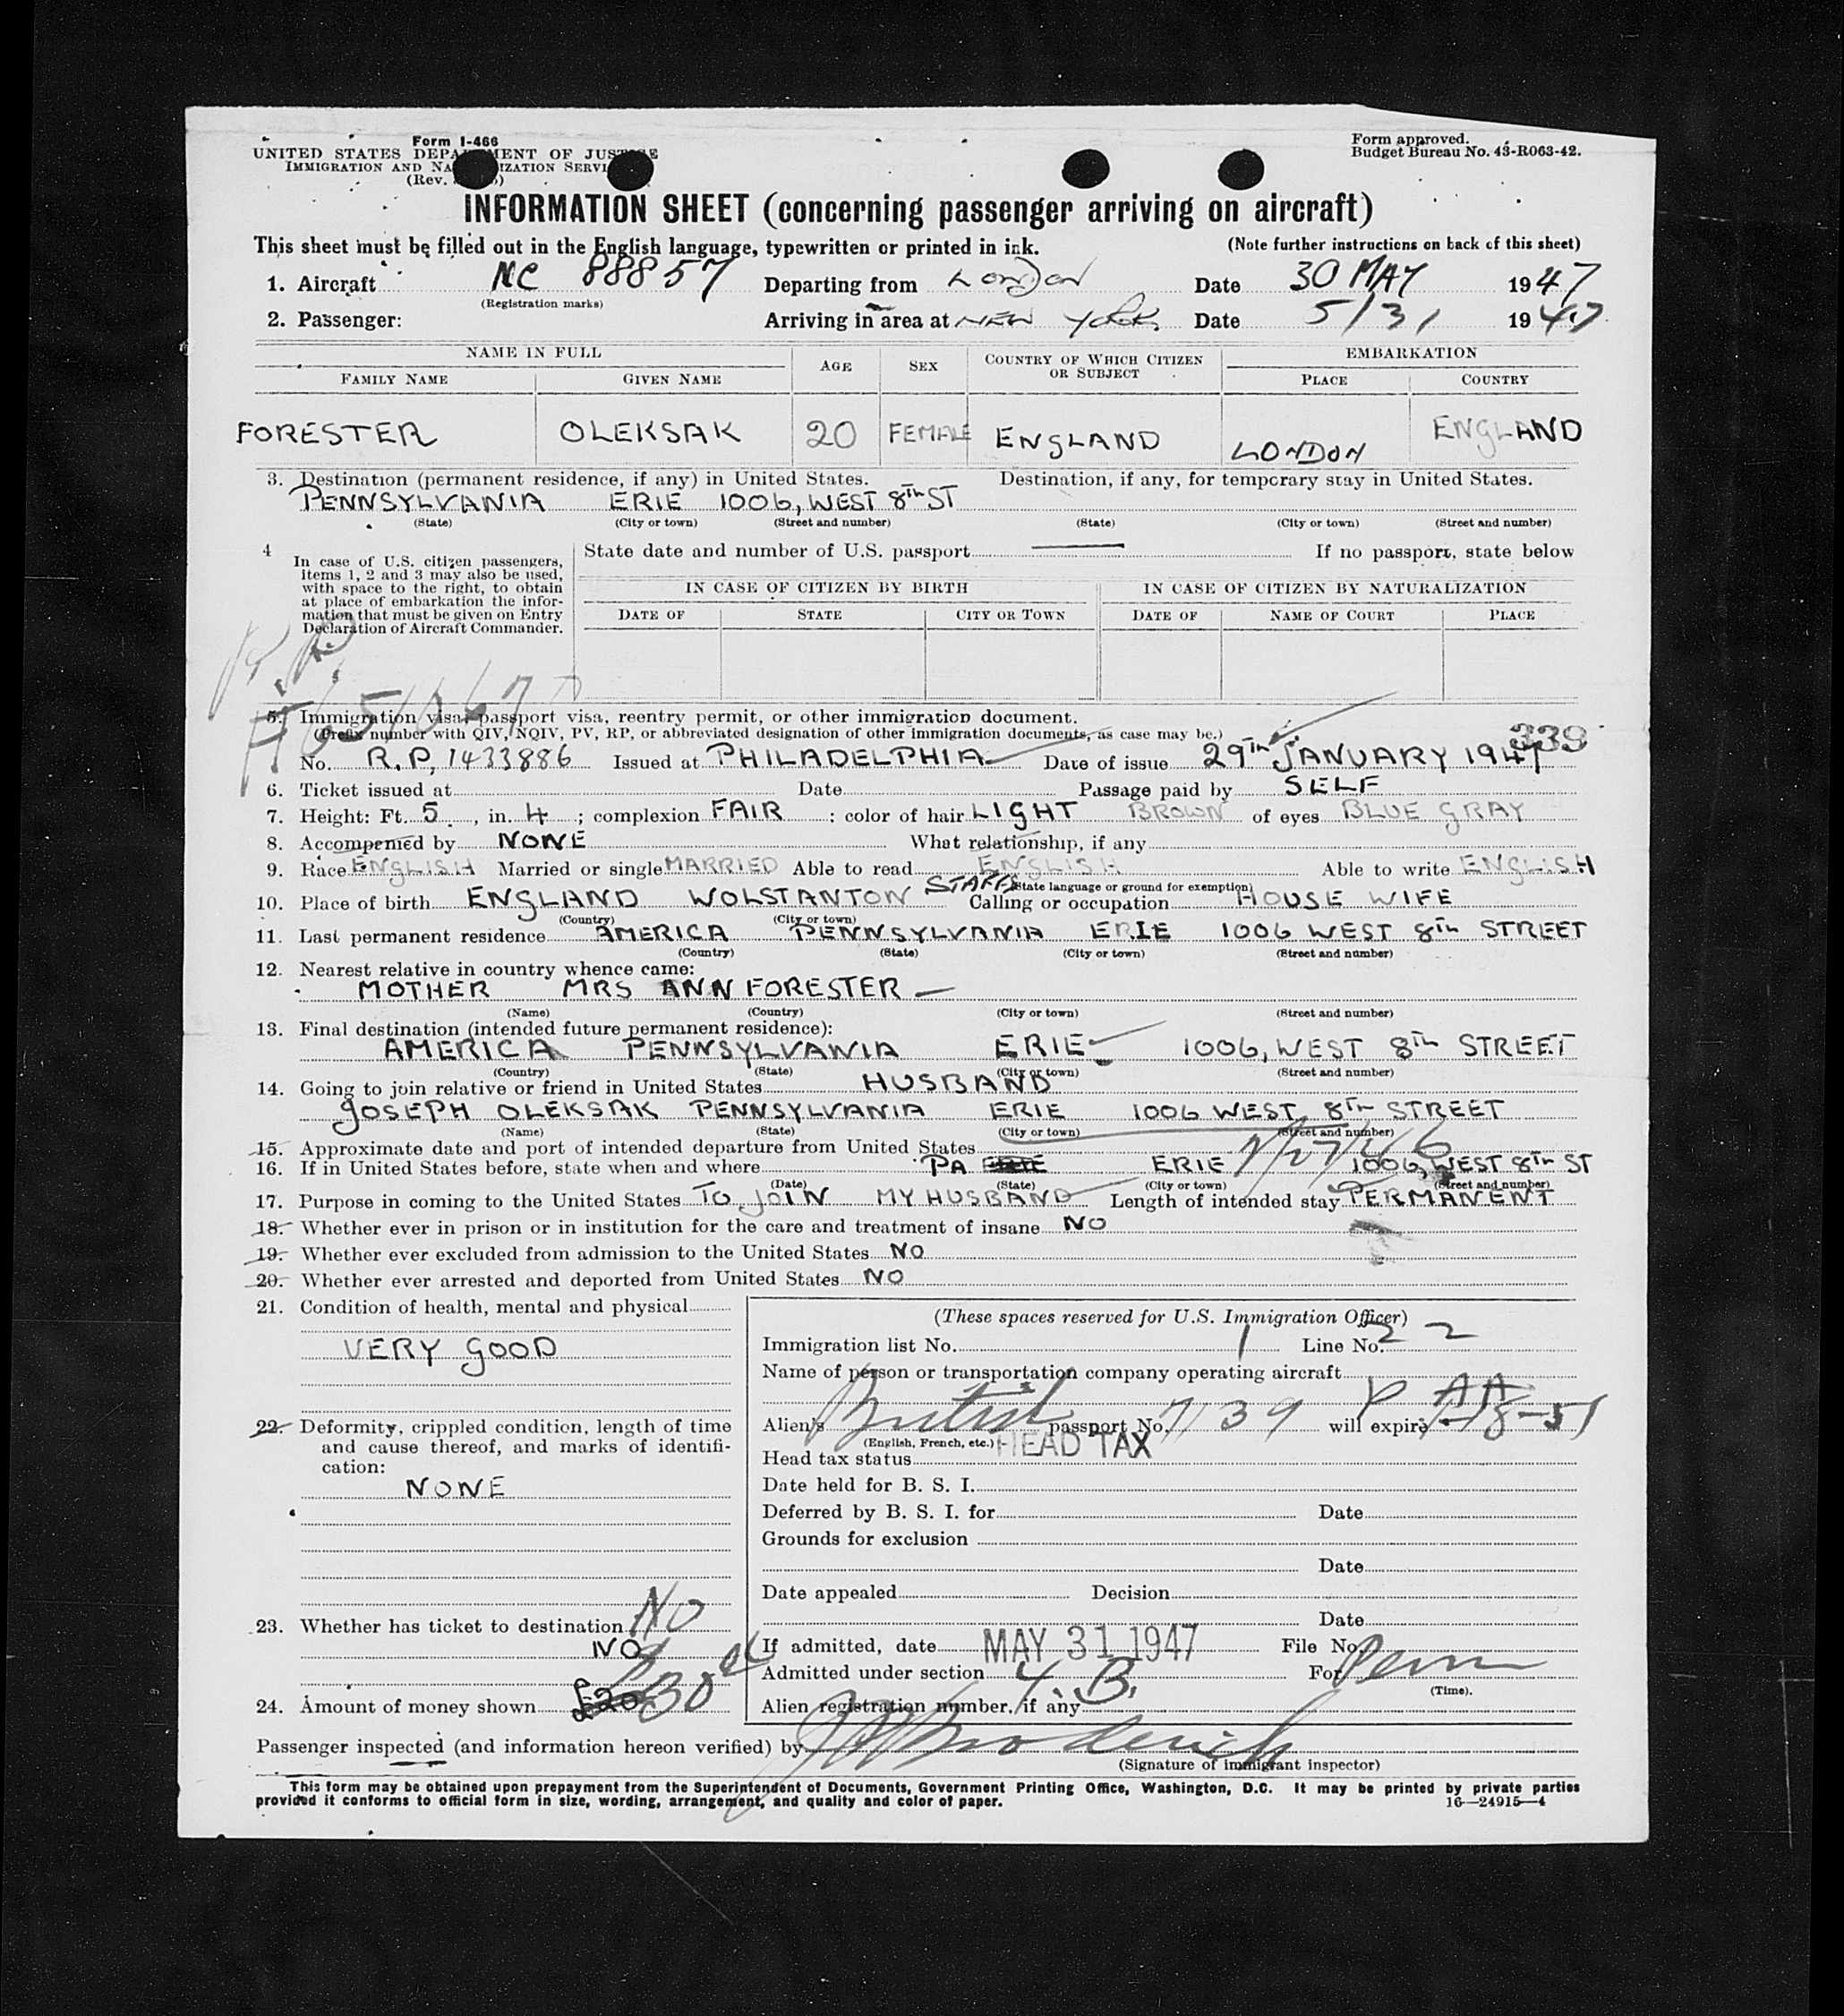 Form I-466
UNITED STATES DEPARTMENT OF JUSTICE
IMMIGRATION AND NATURALIZATION SERVICE
(Rev.
Form approved.
Budget Bureau No. 43-R063-42.
INFORMATION SHEET (concerning passenger arriving on aircraft)
This sheet must be filled out in the English language, typewritten or printed in ink. (Note further instructions on back of this sheet)
1. Aircraft NC 88857 Departing from London Date 30 MAY 1947
(Registration marks)
2. Passenger: Arriving in area at NEW YORK Date 5/31 1947
NAME IN FULL AGE SEX COUNTRY OF WHICH CITIZEN OR SUBJECT EMBARKATION
FAMILY NAME GIVEN NAME PLACE COUNTRY
FORESTER OLEKSAK 20 FEMALE ENGLAND LONDON ENGLAND
3. Destination (permanent residence, if any) in United States. Destination, if any, for temporary stay in United States.
PENNSYLVANIA ERIE 1006, WEST 8TH ST
(State) (City or town) (Street and number) (State) (City or town) (Street and number)
4 In case of U.S. citizen passengers, items 1, 2 and 3 may also be used, with space to the right, to obtain at place of embarkation the information that must be given on Entry Declaration of Aircraft Commander.
State date and number of U.S. passport — If no passport, state below
IN CASE OF CITIZEN BY BIRTH IN CASE OF CITIZEN BY NATURALIZATION
DATE OF STATE CITY OR TOWN DATE OF NAME OF COURT PLACE
5. Immigration visa, passport visa, reentry permit, or other immigration document.
(Prefix number with QIV, NQIV, PV, RP, or abbreviated designation of other immigration documents, as case may be.) 339
No. R.P. 1433886 Issued at PHILADELPHIA Date of issue 29TH JANUARY 1947
6. Ticket issued at Date Passage paid by SELF
7. Height: Ft. 5, in. 4; complexion FAIR; color of hair LIGHT BROWN of eyes BLUE GRAY
8. Accompanied by NONE What relationship, if any
9. Race ENGLISH Married or single MARRIED Able to read ENGLISH Able to write ENGLISH
(State language or ground for exemption)
10. Place of birth ENGLAND WOLSTANTON STAFFS Calling or occupation HOUSE WIFE
(Country) (City or town)
11. Last permanent residence AMERICA PENNSYLVANIA ERIE 1006 WEST 8TH STREET
(Country) (State) (City or town) (Street and number)
12. Nearest relative in country whence came:
MOTHER MRS ANN FORESTER —
(Name) (Country) (City or town) (Street and number)
13. Final destination (intended future permanent residence):
AMERICA PENNSYLVANIA ERIE 1006, WEST 8TH STREET
(Country) (State) (City or town) (Street and number)
14. Going to join relative or friend in United States HUSBAND
JOSEPH OLEKSAK PENNSYLVANIA ERIE 1006 WEST 8TH STREET
(Name) (State) (City or town) (Street and number)
15. Approximate date and port of intended departure from United States
16. If in United States before, state when and where PA ERIE 1006, WEST 8TH ST
(Date) (State) (City or town) (Street and number)
17. Purpose in coming to the United States TO JOIN MY HUSBAND Length of intended stay PERMANENT
18. Whether ever in prison or in institution for the care and treatment of insane NO
19. Whether ever excluded from admission to the United States NO
20. Whether ever arrested and deported from United States NO
21. Condition of health, mental and physical
VERY GOOD
22. Deformity, crippled condition, length of time and cause thereof, and marks of identification:
NONE
23. Whether has ticket to destination NO
NO
24. Amount of money shown £20 30
(These spaces reserved for U.S. Immigration Officer)
Immigration list No. 1 Line No. 22
Name of person or transportation company operating aircraft
P AA
Alien's British passport No. 7139 will expire
(English, French, etc.)
Head tax status HEAD TAX
Date held for B. S. I.
Deferred by B. S. I. for Date
Grounds for exclusion
Date
Date appealed Decision
Date
If admitted, date MAY 31 1947 File No.
Admitted under section 4. B. For Perm
(Time).
Alien registration number, if any
Passenger inspected (and information hereon verified) by
(Signature of immigrant inspector)
This form may be obtained upon prepayment from the Superintendent of Documents, Government Printing Office, Washington, D.C. It may be printed by private parties
provided it conforms to official form in size, wording, arrangement, and quality and color of paper. 16—24915-4